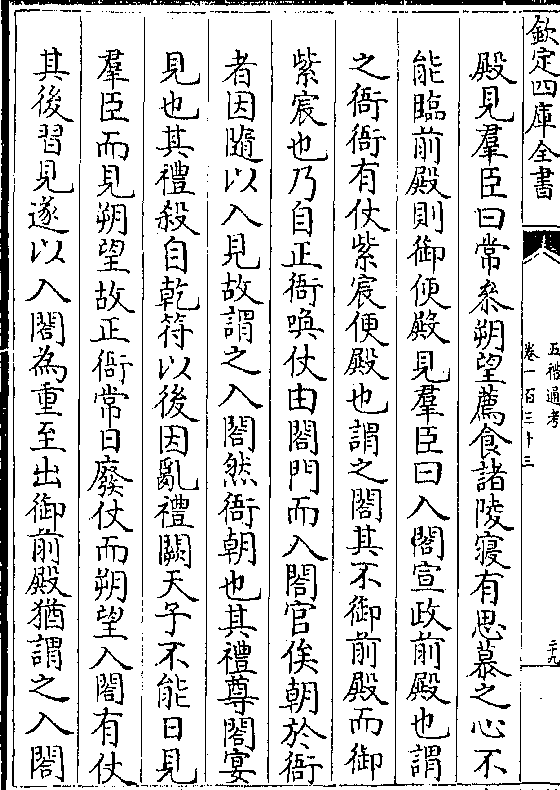 欽定四庫全書
五禮通考
卷一百三十三
二十九
殿見羣臣曰常叅朔望薦食諸陵寢有思慕之心不
能臨前殿則御便殿見羣臣曰入閤宣政前殿也謂
之衙衙有仗紫宸便殿也謂之閤其不御前殿而御
紫宸也乃自正衙喚仗由閤門而入閤官俟朝於衙
者因隨以入見故謂之入閤然衙朝也其禮尊閤宴
見也其禮殺自乾符以後因亂禮闕天子不能日見
羣臣而見朔望故正衙常日廢仗而朔望入閤有仗
其後習見遂以入閤為重至出御前殿猶謂之入閤